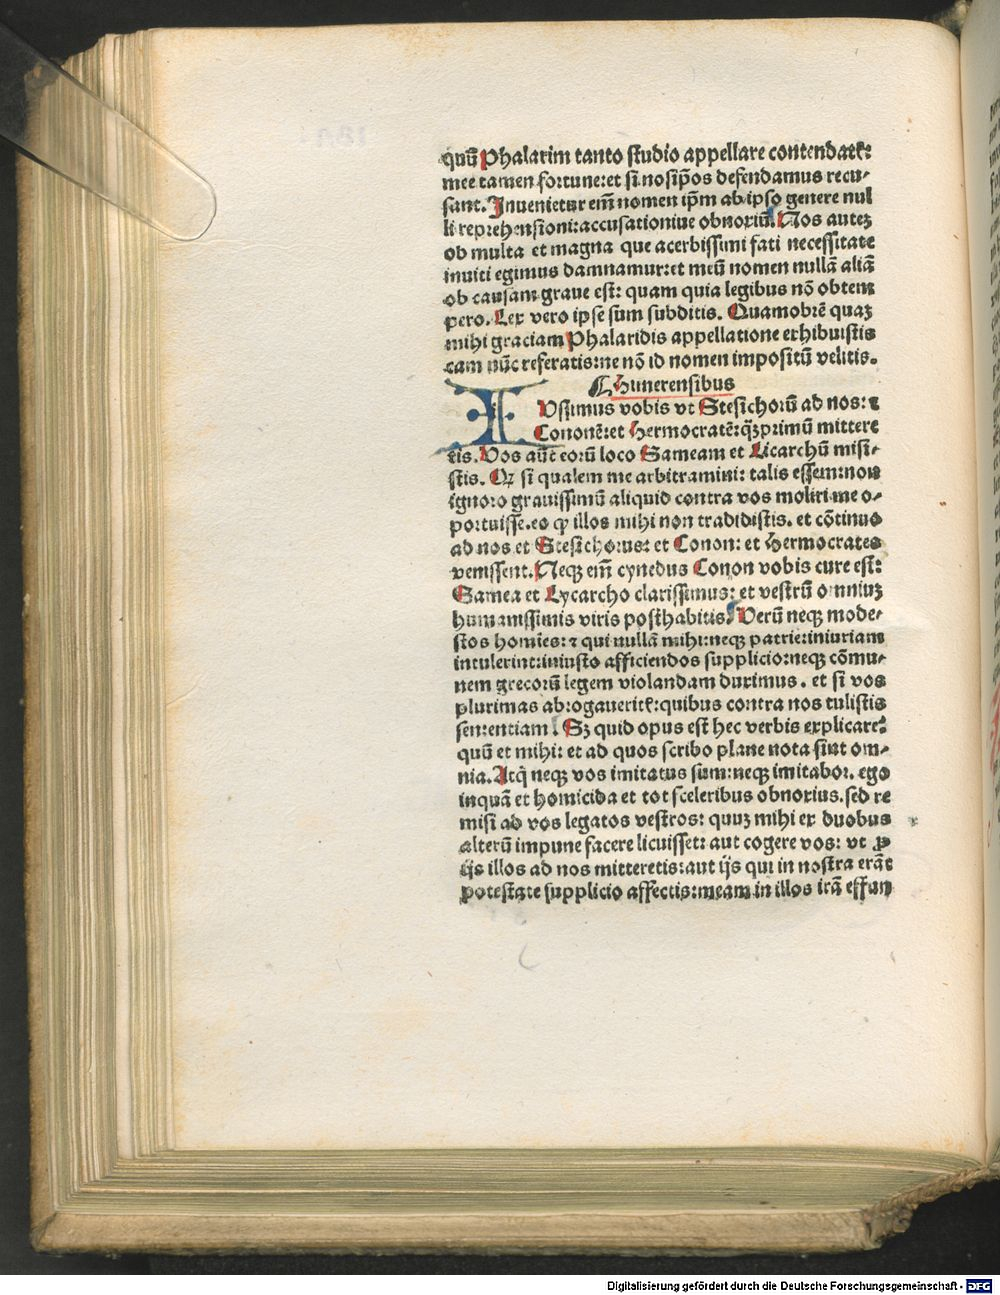 quū Phalarim tanto studio appellare contendatꝭ:
mee tamen fortune: et si nosip̄os defendamus recu-
sant. Inuenietur em̄ nomen ip̄m ab ipso genere nul
li reprehensioni: accusationiue obnoxiū. Nos auteꝫ
ob multa et magna que acerbissimi fati necessitate
inuiti egimus damnamur: et meū nomen nullā aliā
ob causam graue est: quam quia legibus nō obtem
pero. Lex vero ipse sum subditis. Quamobrē quaꝫ
mihi graciam Phalaridis appellatione exhibuistis
eam nūc referatis: ne nō id nomen impositū velitis.
Hunerensibus
I Vssimus vobis vt Stesichorū ad nos: ⁊
Cononē: et Hermocratē: qꝫprimū mittere
tis. Vos aūt eorū loco Sameam et Licarchū misi-
stis. Qꝛ si qualem me arbitramini: talis essem: non
ignoro grauissimū aliquid contra vos moliri me o-
portuisse. eo ꝙ illos mihi non tradidistis. et cōtinuo
ad nos et Stesichorus: et Conon: et Hermocrates
venissent. Neqꝫ em̄ cynedus Conon vobis cure est:
Samea et Lycarcho clarissimus: et vestrū omniuꝫ
humanissimis viris posthabitis. Verū neqꝫ mode-
stos homīes: ⁊ qui nullā mihi: neqꝫ patrie: iniuriam
intulerint: iniusto afficiendos supplicio: neqꝫ cōmu-
nem grecorū legem violandam duximus. et si vos
plurimas abrogaueritꝭ: quibus contra nos tulistis
sententiam. Sꝫ quid opus est hec verbis explicare?
quū et mihi: et ad quos scribo plane nota sint om-
nia. Atq̄ neqꝫ vos imitatus sum: neqꝫ imitabor. ego
inquā et homicida et tot sceleribus obnoxius. sed re
misi ad vos legatos vestros: quuꝫ mihi ex duobus
alterū impune facere licuisset: aut cogere vos: vt ꝓ
ijs illos ad nos mitteretis: aut ijs qui in nostra erāt
potestate supplicio affectis: meam in illos irā effun
Digitalisierung gefördert durch die Deutsche Forschungsgemeinschaft - DFG